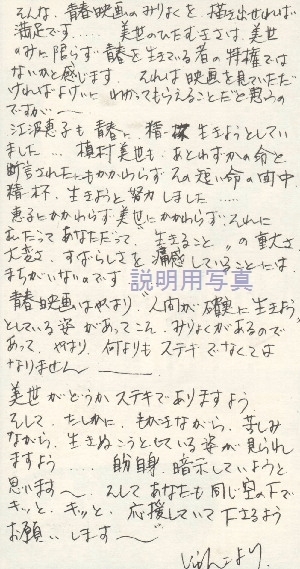 そんな、青春映画のみりょくを、描き出せれば
満足です..... 美世のひたむきさは、美世
のみに限らず青春を生きている者の特権では
ないかと感じます。 それは映画を見ていただ
ければよけいに わかってもらえることだと思うの
ですが〜
江波恵子も青春に、精一杯生きようとしてい
ました... 槙村美也も、あとわずかの命と
断言されたにもかかわらずその短い命の中
精一杯、生きようと努力しました.....
恵子にかかわらず美世にかかわらずそれに
だってあなただって、"生きること"の重大さ、
大変さ、すばらしさを痛感していることには、
まちがいないのです
説明用写真
青春映画はやはり"人間が確実に生きよう"
としている姿があってこそ、みりょくがあるので
あって、やはり何よりもステキでなくては
なりません
美世がどうかステキでありますよう
そして、たしかに、もがきながら、苦しみ
ながら、生きぬこうとしている姿が見られ
ますよう..... 自身、暗示していようと
思います〜、そしてあなたも同じ空の下で
キット、キット、応援していて下さるよう
お願いします〜"
より